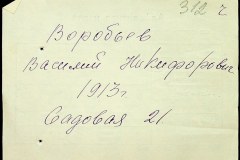 312 г
Воробьев
Василий Никифорович
1913г
Садовая 21